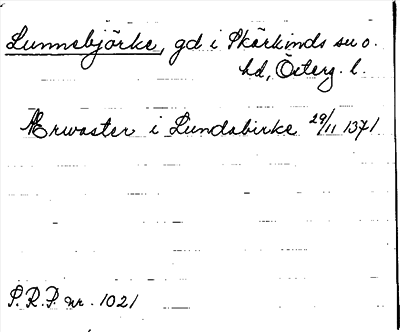 Lunnebjörke, gd i Skärkinds sn o.
hd, Österg. l.
Ærwaster i Lundabirke 29/11 1371
P.R.P. nr. 1021